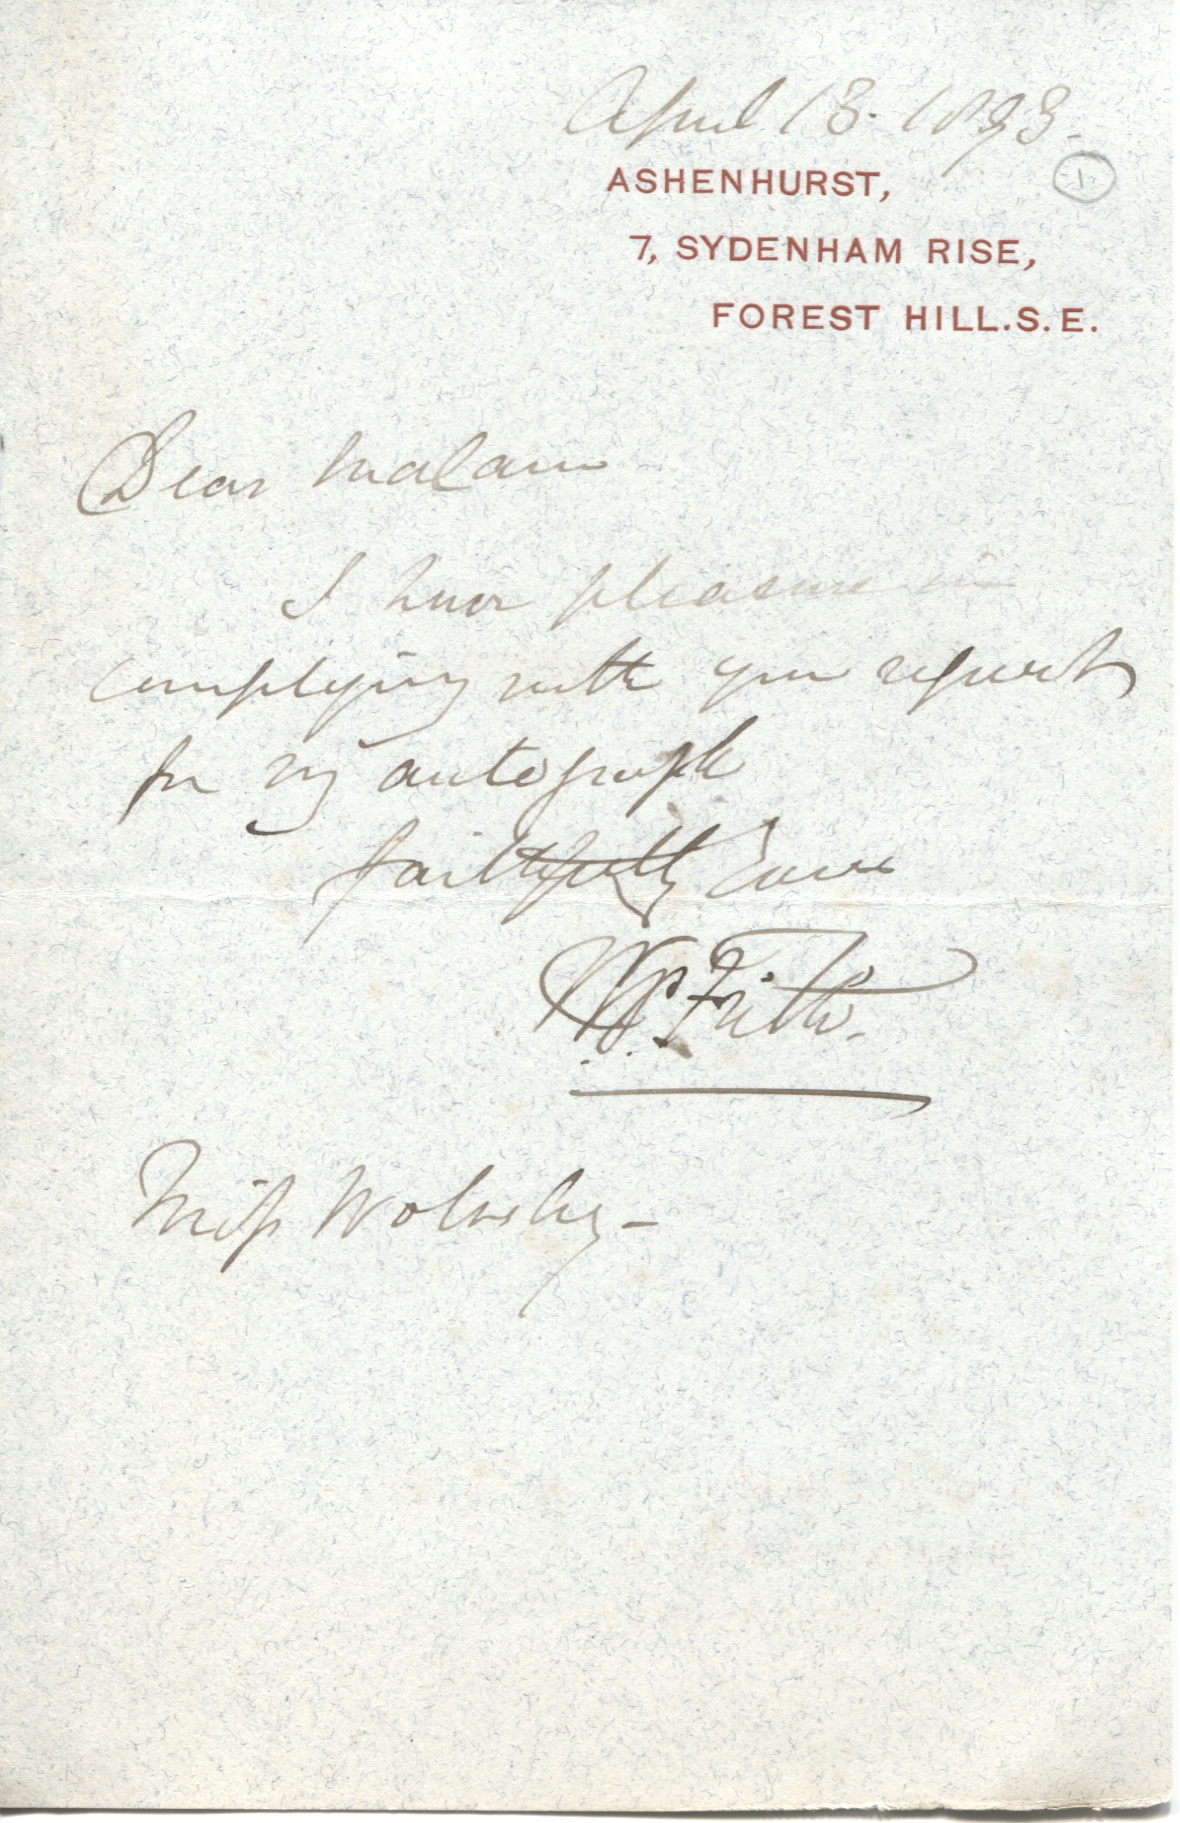 April 13. 1893.
ASHENHURST,
1
7, SYDENHAM RISE,
FOREST HILL.S.E.
Dear Madam
I have pleasure in
complying with your request
for my autograph
faithfully Yours
W.P. Frith.
Miss